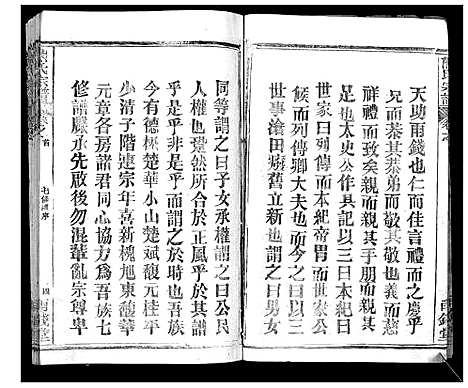 天助雨錢也仁而佳言禮而之慶乎
兄而恭其恭弟而敬其敬也義而慈
祥禮而致矣親而親其手朋而親其
民是也太史公作具記以三曰本紀曰
世家曰列傳而本紀帝君世家
候而列傳卿大夫也而子乎
世滄田廢舊立新也謂之曰男女
同等謂之曰子女承權謂之曰公民
人權也莫然所合於正風乎於其譜
乎是乎非乎而謂之於時也吾族
今有德極楚華小山楚斌馥元俊良
少清子階連宗年喜新槐旭東馥華
元章各房諸君同心協力為吾族七
修譜牒承先啟後勿混輩亂宗尊卑
七修譜序
四
雨錢堂